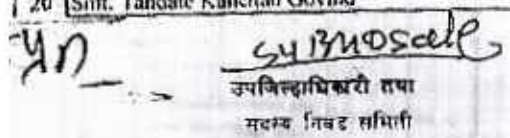 20 Smt. Tandale Kanchan Govind
उपजिल्हाधिकारी तथा
सदस्य निवड समिती